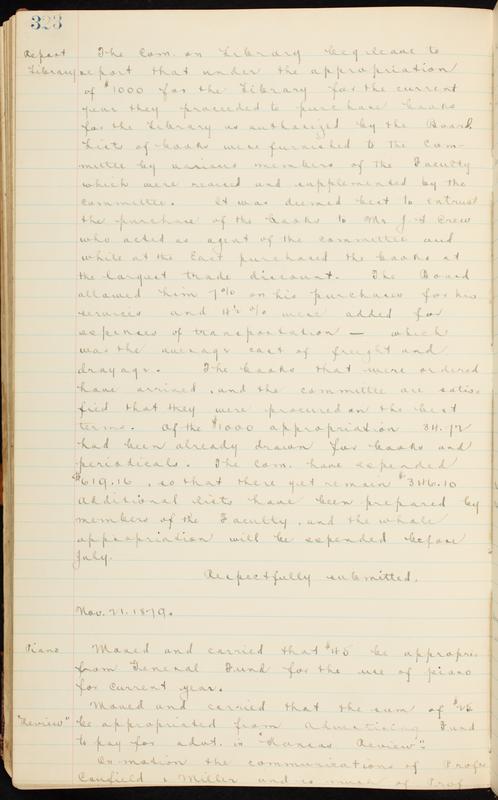 323
Report The Com. on Library beg leave to
Library report that under the appropriation
of $1000 for the Library for the current
year they proceeded to purchase books
for the Library as authorized by the Board
Lists of books were furnished to the Com-
mittee by various members of the Faculty
which were revised and supplemented by the
committee. It was deemed best to entrust
the purchase of the books to Mr. J. S. Crew
who acted as agent of the committee and
while at the East purchased the books at
the largest trade discount. The Board
allowed him 7% on his purchases for his
services and 4½% were added for
expenses of transportation — which
was the average cost of freight and
drayage. The books that were ordered
have arrived, and the committee are satis-
fied that they were procured on the best
terms. Of the $1000 appropriation 34.72
had been already drawn for books and
periodicals. The Com. have expended
$619.16, so that there yet remain $346.10
Additional lists have been prepared by
members of the Faculty, and the whole
appropriation will be expended before
July.
Respectfully submitted.
Nov. 21. 1879.
Piano Moved and carried that $45 be appropri-
from General Fund for the use of piano
for current year.
Moved and carried that the sum of
"Review" be appropriated from Advertising Fund
to pay for advt. in "Kansas Review".
On motion the communications of Profs
Canfield & Miller and so much of Prof